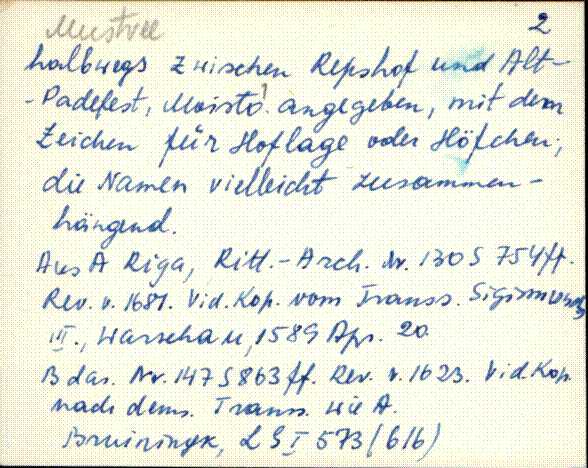 Mustvee
2
halbwegs zwischen Repshof und Alt-
-Padefest, Moisto! angegeben, mit dem
Zeichen für Hoflage oder Höfchen;
die Namen vielleicht zusammen-
hängend.
Aus A Riga, Ritt.-Arch. Nr. 130 S 754ff.
Rev. v. 1681. Vid. Kop. vom Transs. Sigismunds
III., Warschau, 1589 Apr. 20.
B das. Nr. 147 S 863 ff. Rev. v. 1623. Vid. Kop.
nach dems. Transs. wie A.
Bruiningk, LG I 573 (616)